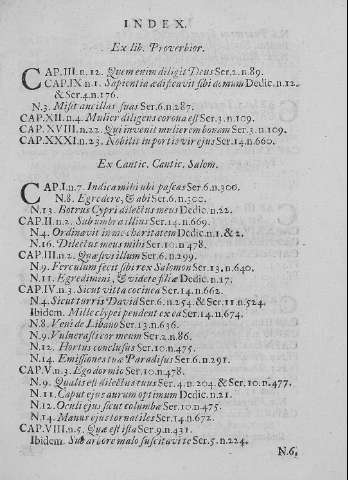 INDEX.
Ex lib. Proverbior.
CAP.III.n.12. Quem enim diligit Deus Ser.2.n.89.
CAP.IX n.1. Sapientia ædificavit sibi domum Dedic.n.12.
& Ser.4.n.176.
N.3. Misit ancillas suas Ser.6.n.287.
CAP.XII.n.4. Mulier diligens corona est Ser.3.n.109.
CAP.XVIII.n.22. Qui invenit mulierem bonam Ser.3.n.109.
CAP.XXXI.n.23. Nobilis in portis vir ejus Ser.14.n.660.
Ex Cantic. Cantic. Salom.
CAP.I.n.7. Indica mihi ubi pascas Ser.6.n.300.
N.8. Egredere, & abi Ser.6.n.300.
N.13. Botrus Cypri dilectus meus Dedic.n.22.
CAP.II.n.2. Sub umbra illius Ser.14.n.669.
N.4. Ordinavit in me charitatem Dedic.n.1. & 2.
N.16. Dilectus meus mihi Ser.10.n.478.
CAP.III.n.2. Quæsivi illum Ser.6.n.299.
N.9. Ferculum fecit sibi rex Salomon Ser.13.n.640.
N.11. Egredimini, & videte filiæ Dedic.n.17.
CAP.IV.n.3. Sicut vitta cocinea Ser.14.n.662.
N.4. Sicut turris David Ser.6.n.254. & Ser.11.n.524.
Ibidem. Mille clypei pendent ex ea Ser.14.n.674.
N.8. Veni de Libano Ser.13.n.636.
N.9. Vulnerasti cor meum Ser.2.n.86.
N.12. Hortus conclusus Ser.10.n.475.
N.14. Emissiones tuæ Paradisus Ser.6.n.291.
CAP.V.n.3. Ego dormio Ser.10.n.478.
N.9. Qualis est dilectus tuus Ser.4.n.204. & Ser.10.n.477.
N.11. Caput ejus aurum optimum Dedic.n.21.
N.12. Oculi ejus sicut columbæ Ser.10.n.475.
N.14. Manus ejus tornatiles Ser.14.n.672.
CAP.VIII.n.5. Quæ est ista Ser.9.n.431.
Ibidem. Sub arbore malo suscitavi te Ser.5.n.224.
N.6.